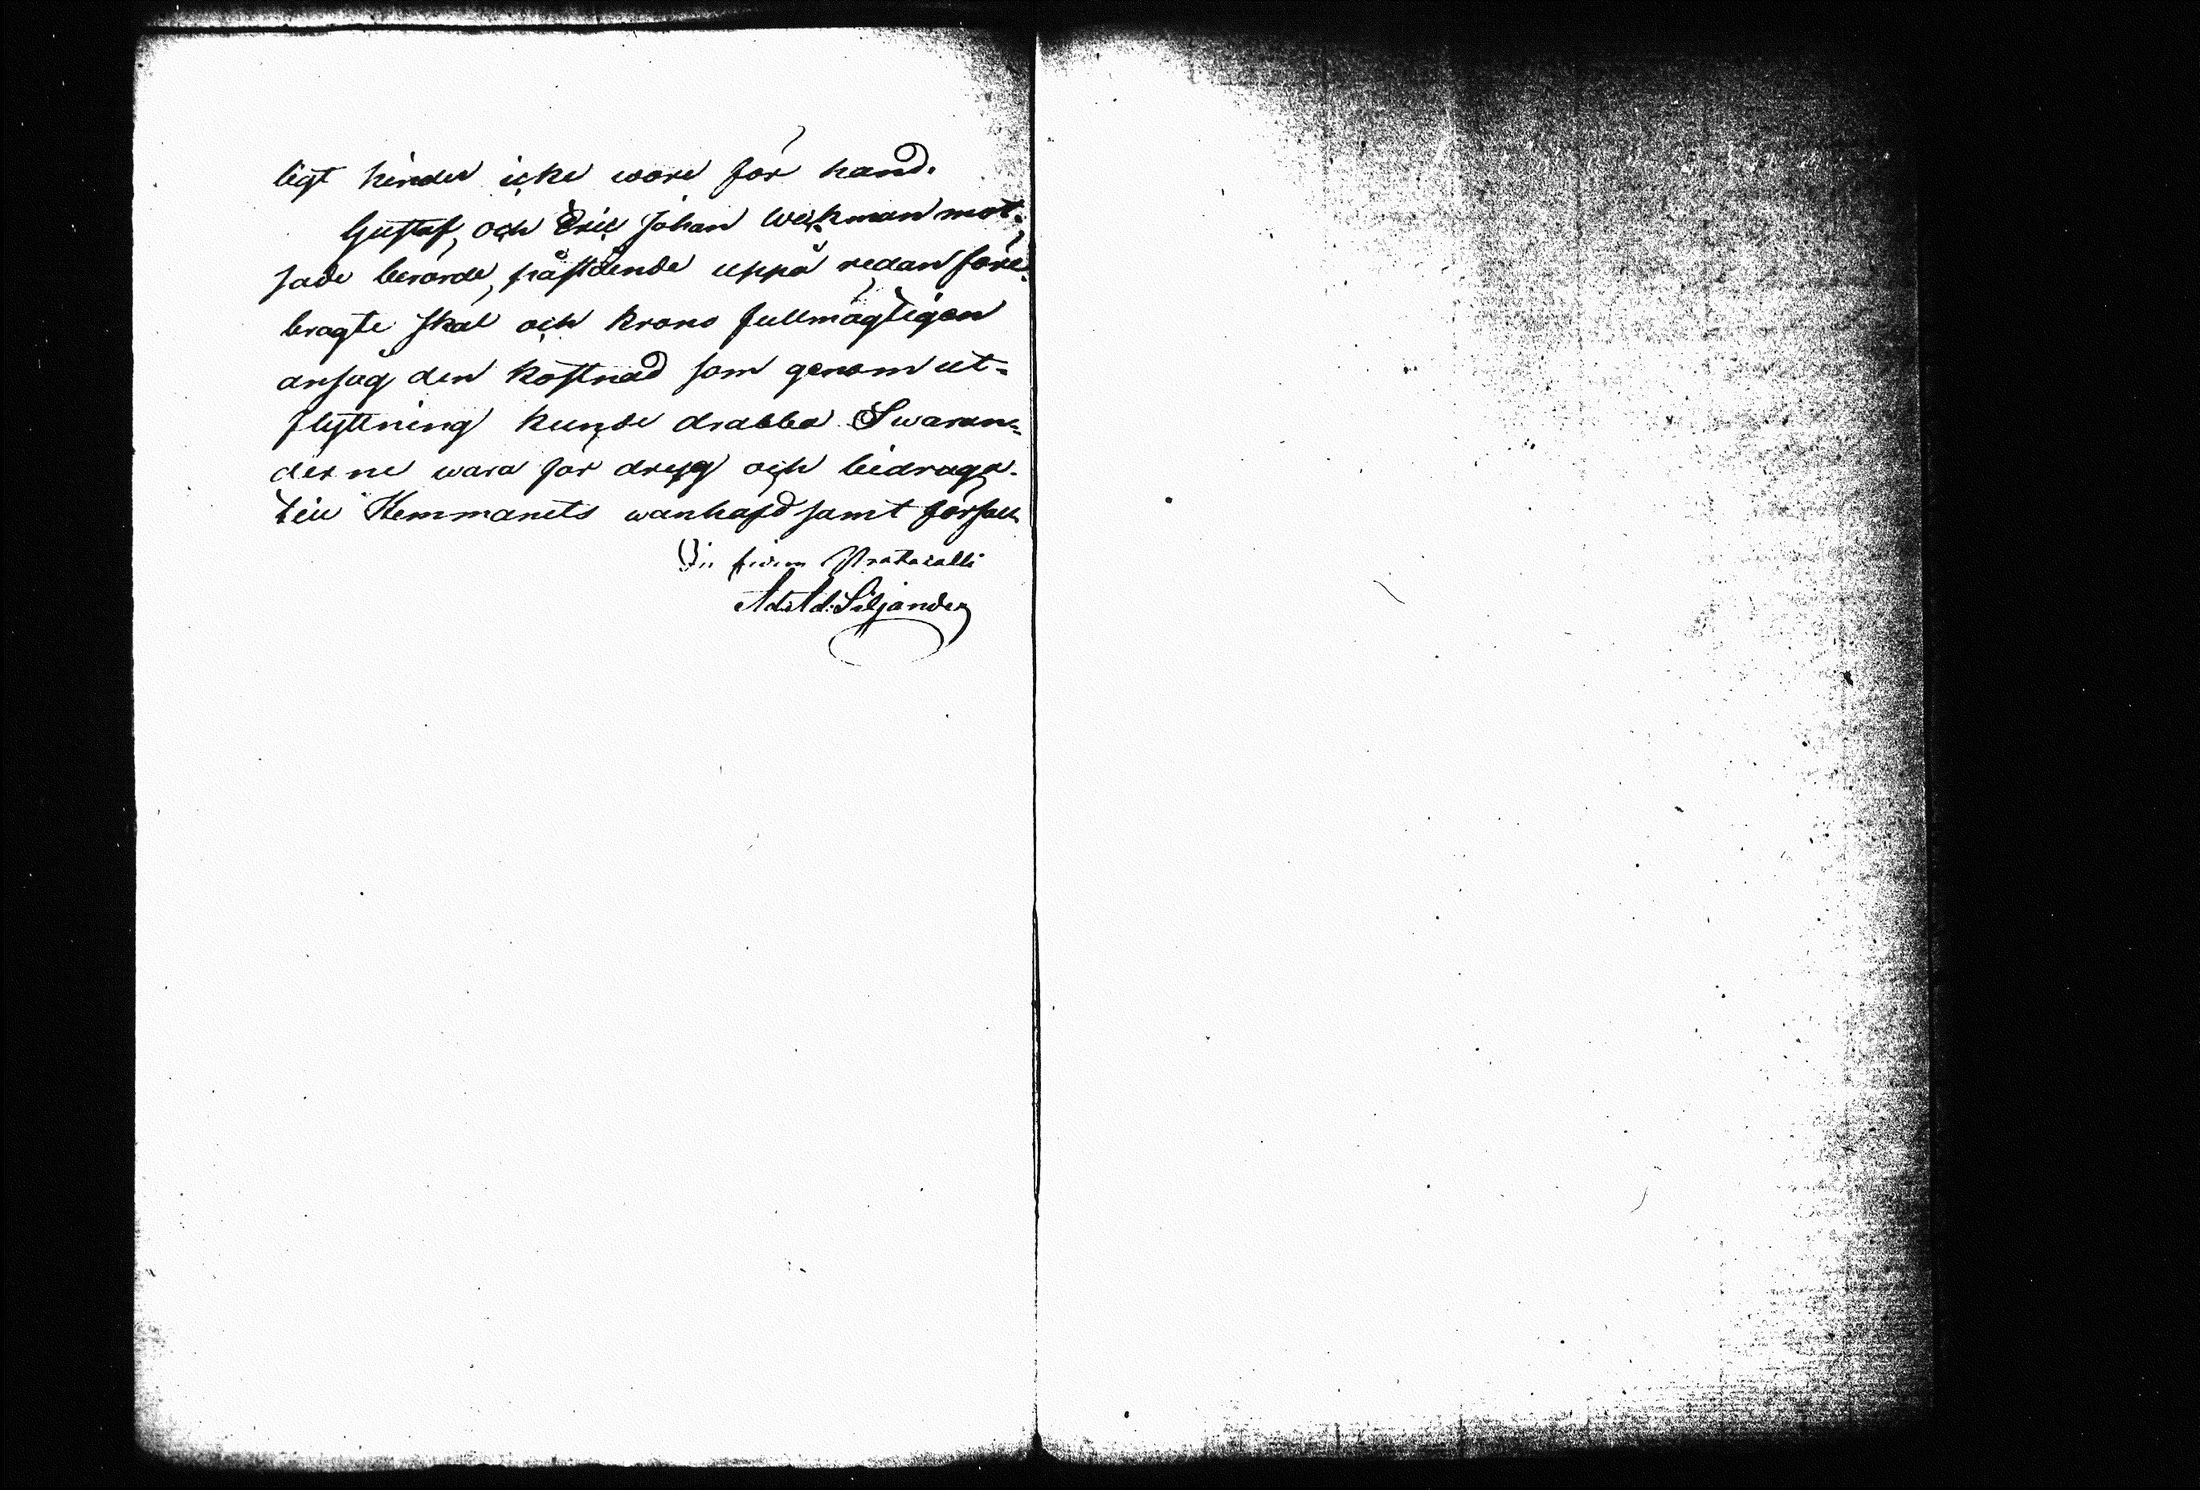 ligt hinder icke wore för hand.
Gustaf, och Eric Johan Weckman mot-
sade berörde påstående uppå redan före-
bragte skäl och krono fullmägtigen
ansåg den kostnad som genom ut-
flyttning kunde drabba Swaran-
derne wara för dryg och bidraga
till Hemmanets wanhäfd samt förfall
In fidem Protocolli
Ad: Siljander